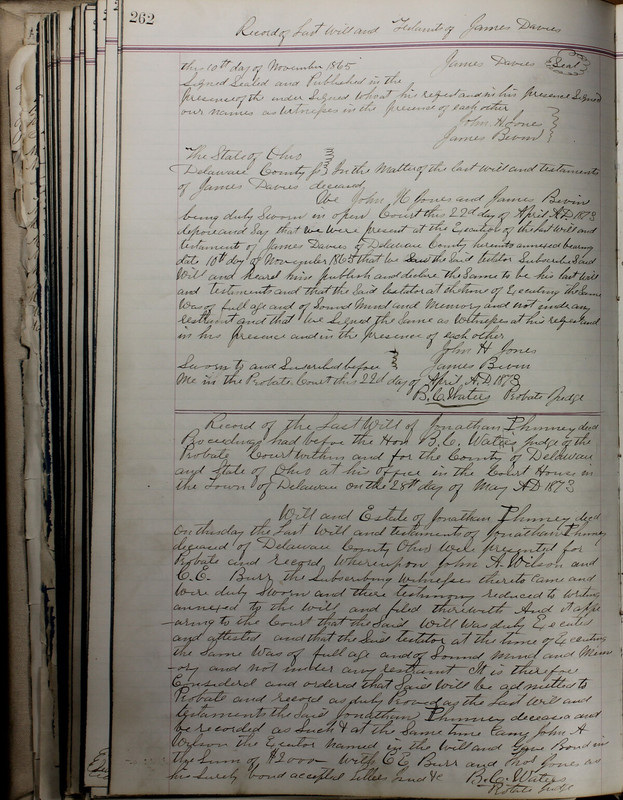 262
Record of Last Will and Testament of James Davies
this 10th day of November 1865 James Davies Seal
Signed Sealed and Published in the
presence of the under Signed who at his request and in his presence Signed
our names as witnesses in the presence of each other
John H Jones
James Bivin
The State of Ohio
Delaware County SS In the Matter of the last Will and testaments
of James Davies deceased
We John H Jones and James Bivin
being duly Sworn in open Court this 22d day of April A.D 1873
depose and Say that we were present at the Execution of the last Will and
testament of James Davies of Delaware County hereunto annexed bearing
date 10th day of November 1865 that we Saw the Said testator Subscribe Said
Will and heard him publish and declare the Same to be his last will
and testaments and that the Said testator at the time of Executing the Same
Was of full age and of Sound Mind and Memory and not under any
restraint and that we Signed the Same as Witnesses at his request and
in his presence and in the presence of each other
John H Jones
Sworn to and Subscribed before James Bivin
Me in the Probate Court this 22d day of April, A.D 1873
B. C. Waters Probate Judge
Record of the Last Will of Jonathan Phinney decd
Proceedings had before the Hon B. C. Waters Judge of the
Probate Court within and for the County of Delaware
and State of Ohio at his Office in the Court House in
the Town of Delaware on the 28th day of May AD 1873
Will and Estate of Jonathan Phinney decd
On this day the Last Will and testament of Jonathan Phinney
deceased of Delaware County Ohio were presented for
Probate and record, Whereupon John A. Wilson and
C. E. Burr the Subscribing Witnesses thereto came and
Were duly Sworn and there testimony reduced to Writing
annexed to the Will and filed therewith And it appe
-aring to the Court that the Said Will was duly Executed
and attested and that the Said testator at the time of Executing
the Same Was of full age and of Sound Mind and Mem
-ory and not under any restraint It is therefore
Considered and ordered that Said Will be admitted to
Probate and record as duly Proved as the Last Will and
testament of the Said Jonathan Phinney deceased and
be recorded as Such & at the Same time Came John A
Wilson the Executor named in the Will and Gave Bond in
the Sum of $2000 With C E Burr and Jones as
his Surety bond accepted Letters &c B. C. Waters
Probate Judge